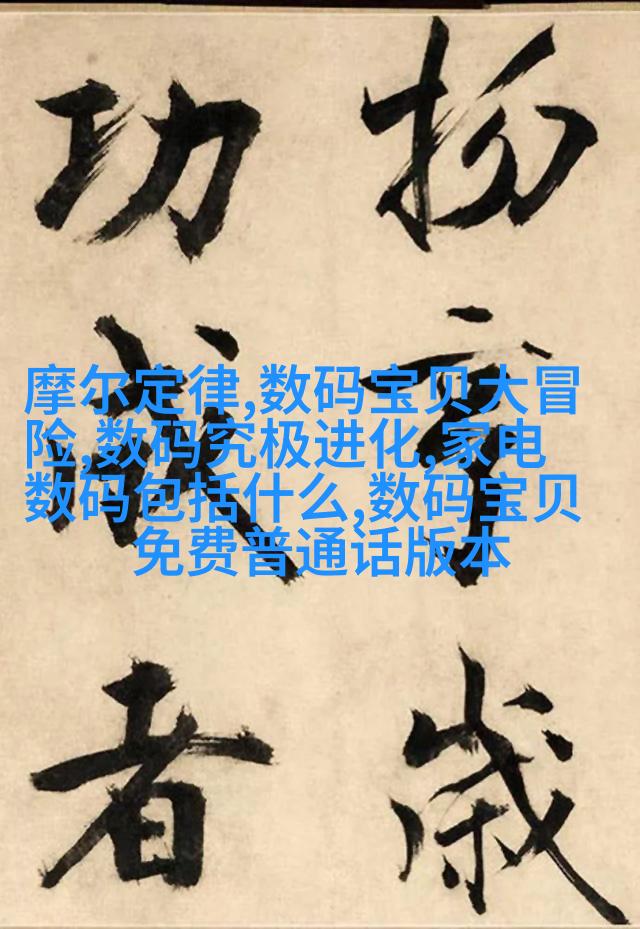 歲
功成者
摩尔定律,数码宝贝大冒
险,数码究极进化,家电
数码包括什么,数码宝贝
免费普通话版本